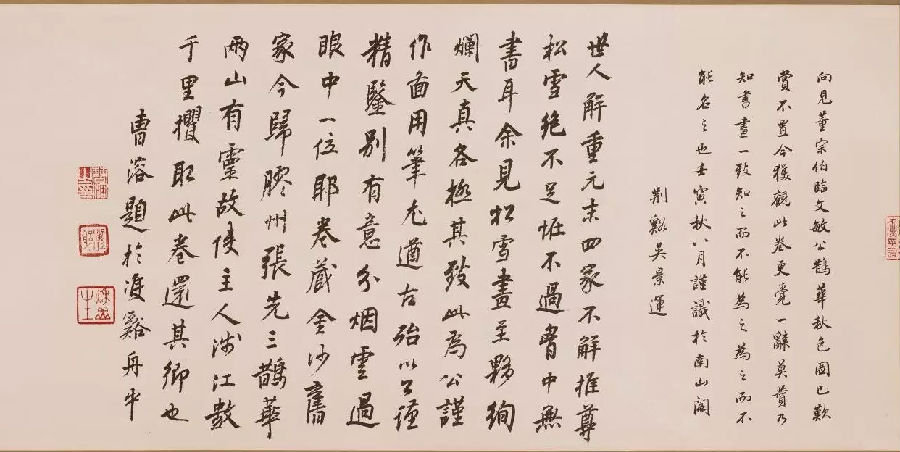 向見董宗伯臨文敏公鵲華秋色圖已歎
賞不置今獲觀此卷更覺一辭莫贊乃
知書畫一致知之而不能為之為之而不
能名之也壬寅秋八月謹識於南山閣
荆谿吳景運
世人解重元末四家不解推尊
松雪絶不足怪不過胷中無
書耳余見松雪畫至夥絢
爛天真各極其致此為公謹
作面用筆尤遒古殆以公謹
精鑒別有意分烟雲過
眼中一位耶卷藏金沙舊
家今歸膠州張先三鵲華
兩山有靈故使主人涉江數
千里攫取此卷還其鄉也
曹溶題於雙谿舟中